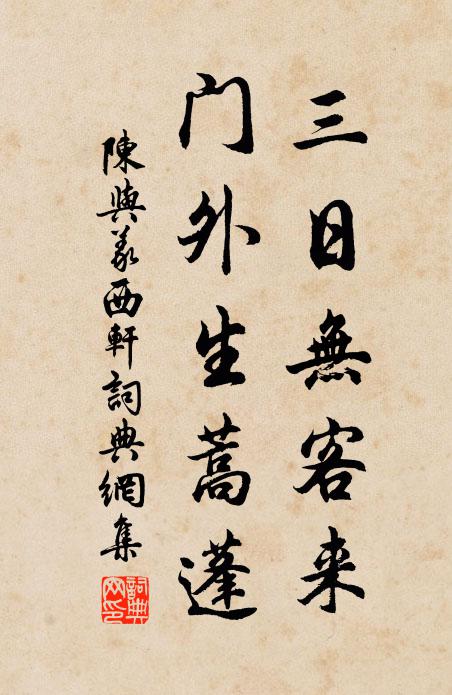 三日無客来
门外生蒿蓬
陳與義西軒詞典網集
詞典网印